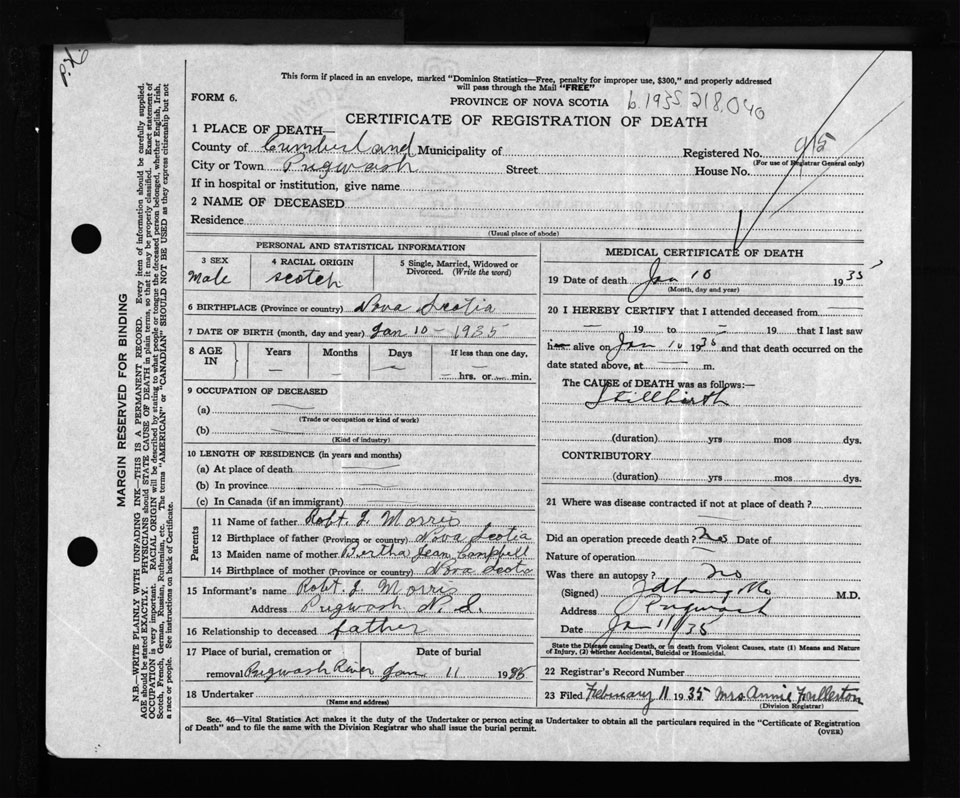 P.K.
This form if placed in an envelope, marked "Dominion Statistics—Free, penalty for improper use, $300," and properly addressed
will pass through the Mail "FREE"
FORM 6.
PROVINCE OF NOVA SCOTIA
b.1935 218.040
CERTIFICATE OF REGISTRATION OF DEATH
1 PLACE OF DEATH—
County of Cumberland Municipality of Registered No. 915
(For use of Registrar General only)
City or Town Pugwash Street House No.
If in hospital or institution, give name
2 NAME OF DECEASED
Residence
(Usual place of abode)
PERSONAL AND STATISTICAL INFORMATION
3 SEX 4 RACIAL ORIGIN 5 Single, Married, Widowed or
Divorced. (Write the word)
Male Scotch
6 BIRTHPLACE (Province or country) Nova Scotia
7 DATE OF BIRTH (month, day and year) Jan 10 - 1935
8 AGE IN Years Months Days If less than one day,
— — — — hrs. or — min.
9 OCCUPATION OF DECEASED
(a) —
(Trade or occupation or kind of work)
(b) —
(Kind of industry)
10 LENGTH OF RESIDENCE (in years and months)
(a) At place of death
(b) In province
(c) In Canada (if an immigrant)
Parents
11 Name of father Robt. J. Morris
12 Birthplace of father (Province or country) Nova Scotia
13 Maiden name of mother Bertha Jean Campbell
14 Birthplace of mother (Province or country) Nova Scotia
15 Informant's name Robt. J. Morris
Address Pugwash N.S.
16 Relationship to deceased father
17 Place of burial, cremation or Date of burial
removal Pugwash River Jan 11 1935
18 Undertaker
(Name and address)
MEDICAL CERTIFICATE OF DEATH
19 Date of death Jan 10 1935
(Month, day and year)
20 I HEREBY CERTIFY that I attended deceased from
— 19 to — 19 that I last saw
h alive on Jan 10 1935 and that death occurred on the
date stated above, at — m.
The CAUSE of DEATH was as follows:—
Stillbirth
(duration) yrs mos dys.
CONTRIBUTORY
(duration) yrs mos dys.
21 Where was disease contracted if not at place of death?
Did an operation precede death? No Date of
Nature of operation
Was there an autopsy? No
(Signed) M.D.
Address Pugwash
Date Jan 11/35
State the Disease causing Death, or in death from Violent Causes, state (1) Means and Nature
of Injury, (2) whether Accidental, Suicidal or Homicidal.
22 Registrar's Record Number
23 Filed February 11 1935 Mrs Annie Foullerton
(Division Registrar)
Sec. 46—Vital Statistics Act makes it the duty of the Undertaker or person acting as Undertaker to obtain all the particulars required in the "Certificate of Registration
of Death" and to file the same with the Division Registrar who shall issue the burial permit.
(OVER)
MARGIN RESERVED FOR BINDING
N.B.—WRITE PLAINLY WITH UNFADING INK—THIS IS A PERMANENT RECORD. Every item of information should be carefully supplied.
AGE should be stated EXACTLY. PHYSICIANS should STATE CAUSE OF DEATH in plain terms, so that it may be properly classified. Exact statement of
OCCUPATION is very important. RACIAL ORIGIN will be described by stating to what people or tongue the deceased person belonged, whether English, Irish,
Scotch, French, German, Russian, Ruthenian, etc. The terms "AMERICAN" or "CANADIAN" SHOULD NOT BE USED as they express citizenship but not
a race or people. See instructions on back of Certificate.